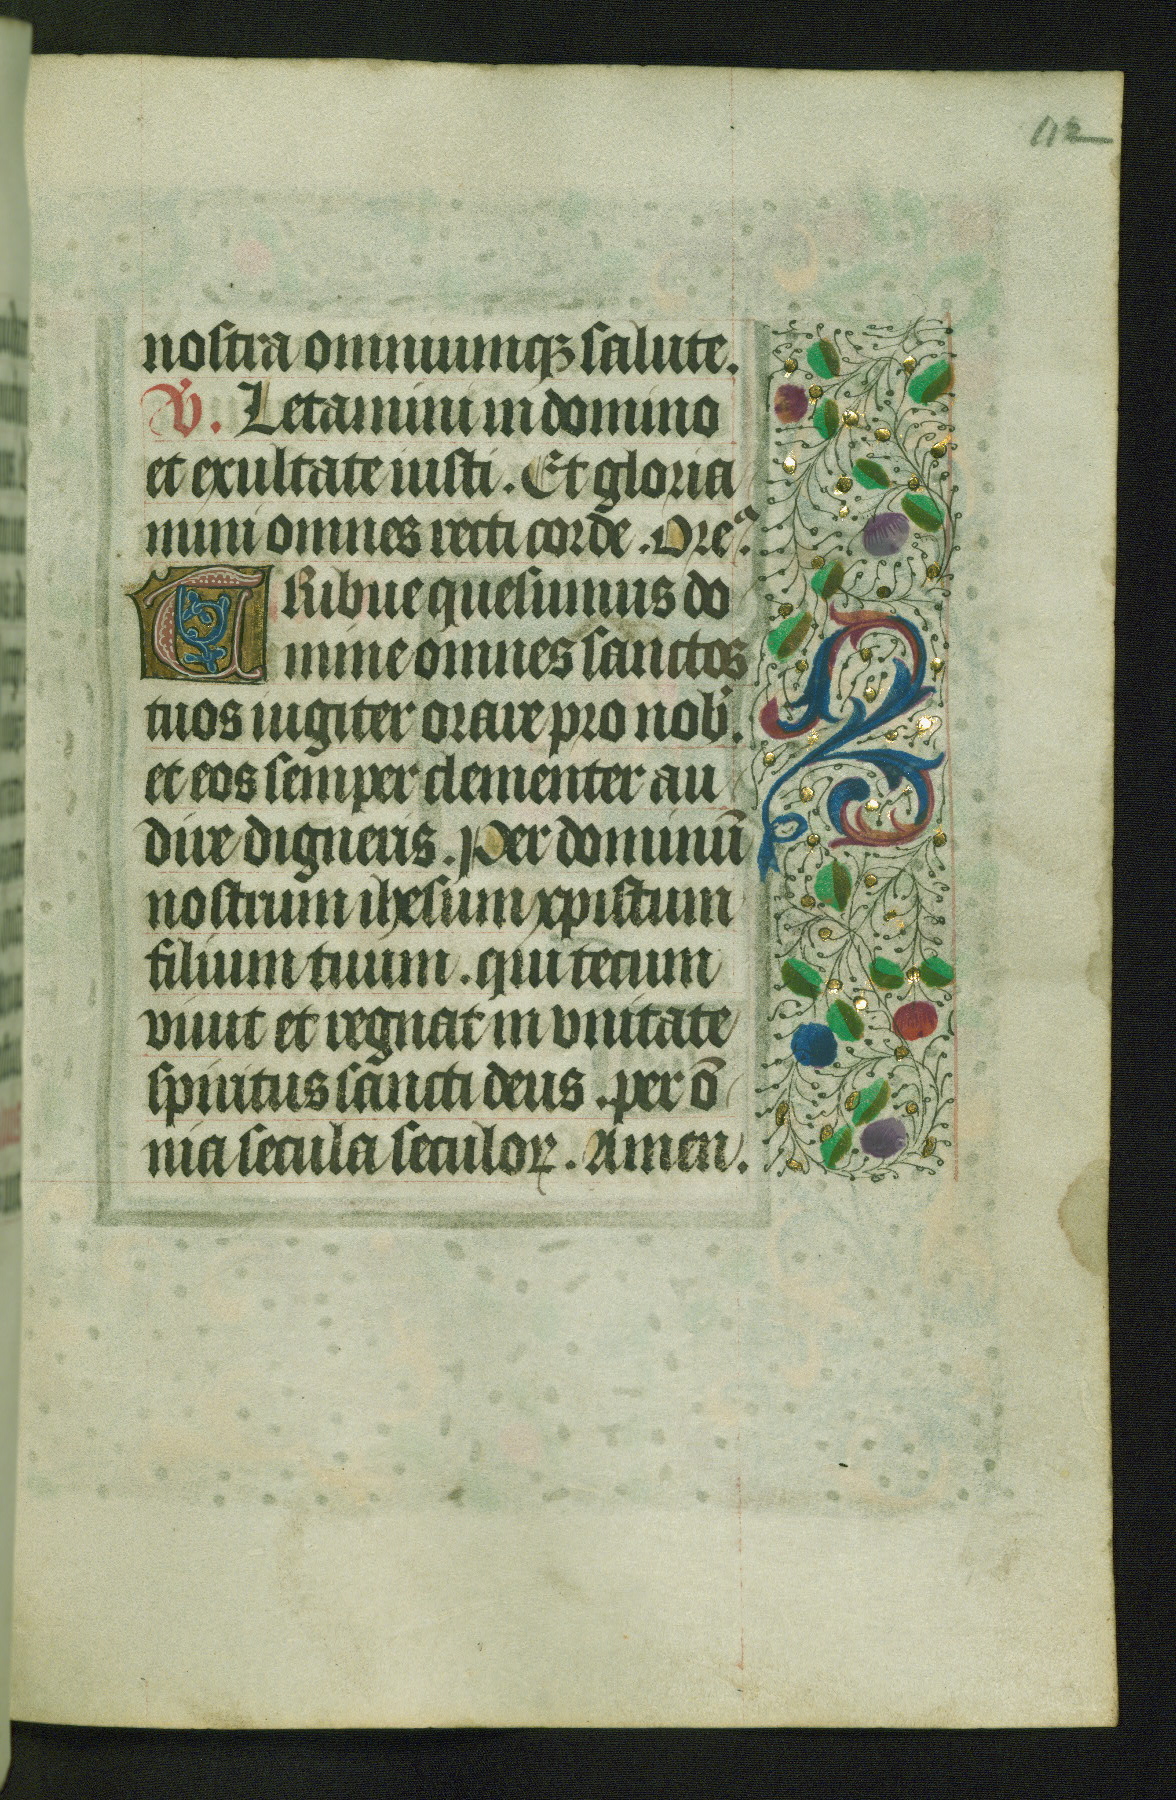 112
nostra omniumqꝫ salute.
V̇. Letamini in domino
et exultate iusti. Et gloria
mini omnes recti corde. Oreᵃ.
Tribue quesumus do
mine omnes sanctos
tuos iugiter orare pro nob̾.
et eos semper clementer au
dire digneris. Per dominū
nostrum ihesum xpistum
filium tuum. qui tecum
viuit et regnat in vnitate
spiritus sancti deus. per ō
nia secula seculoꝝ. Amen.